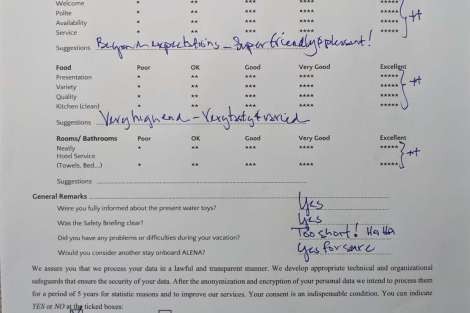 Welcome * ** *** ****
Polite * ** *** **** ***** ++
Availability * ** *** **** *****
Service * ** *** **** *****
Suggestions Beyond my expectations - Super friendly & pleasant!
Food Poor OK Good Very Good Excellent
Presentation * ** *** **** *****
Variety * ** *** **** ***** ++
Quality * ** *** **** *****
Kitchen (clean) * ** *** **** *****
Suggestions Very high end - Very tasty & varied
Rooms/ Bathrooms Poor OK Good Very Good Excellent
Neatly * ** *** **** *****
Hotel Service ++
(Towels, Bed...) * ** *** **** *****
Suggestions
General Remarks
Were you fully informed about the present water toys? Yes
Was the Safety Briefing clear? Yes
Did you have any problems or difficulties during your vacation? Too short! Ha Ha
Would you consider another stay onboard ALENA? Yes for sure
We assures you that we process your data in a lawful and transparent manner. We develop appropriate technical and organizational
safeguards that ensure the security of your data. After the anonymization and encryption of your personal data we intend to process them
for a period of 5 years for statistic reasons and to improve our services. Your consent is an indispensable condition. You can indicate
YES or NO at the ticked boxes: